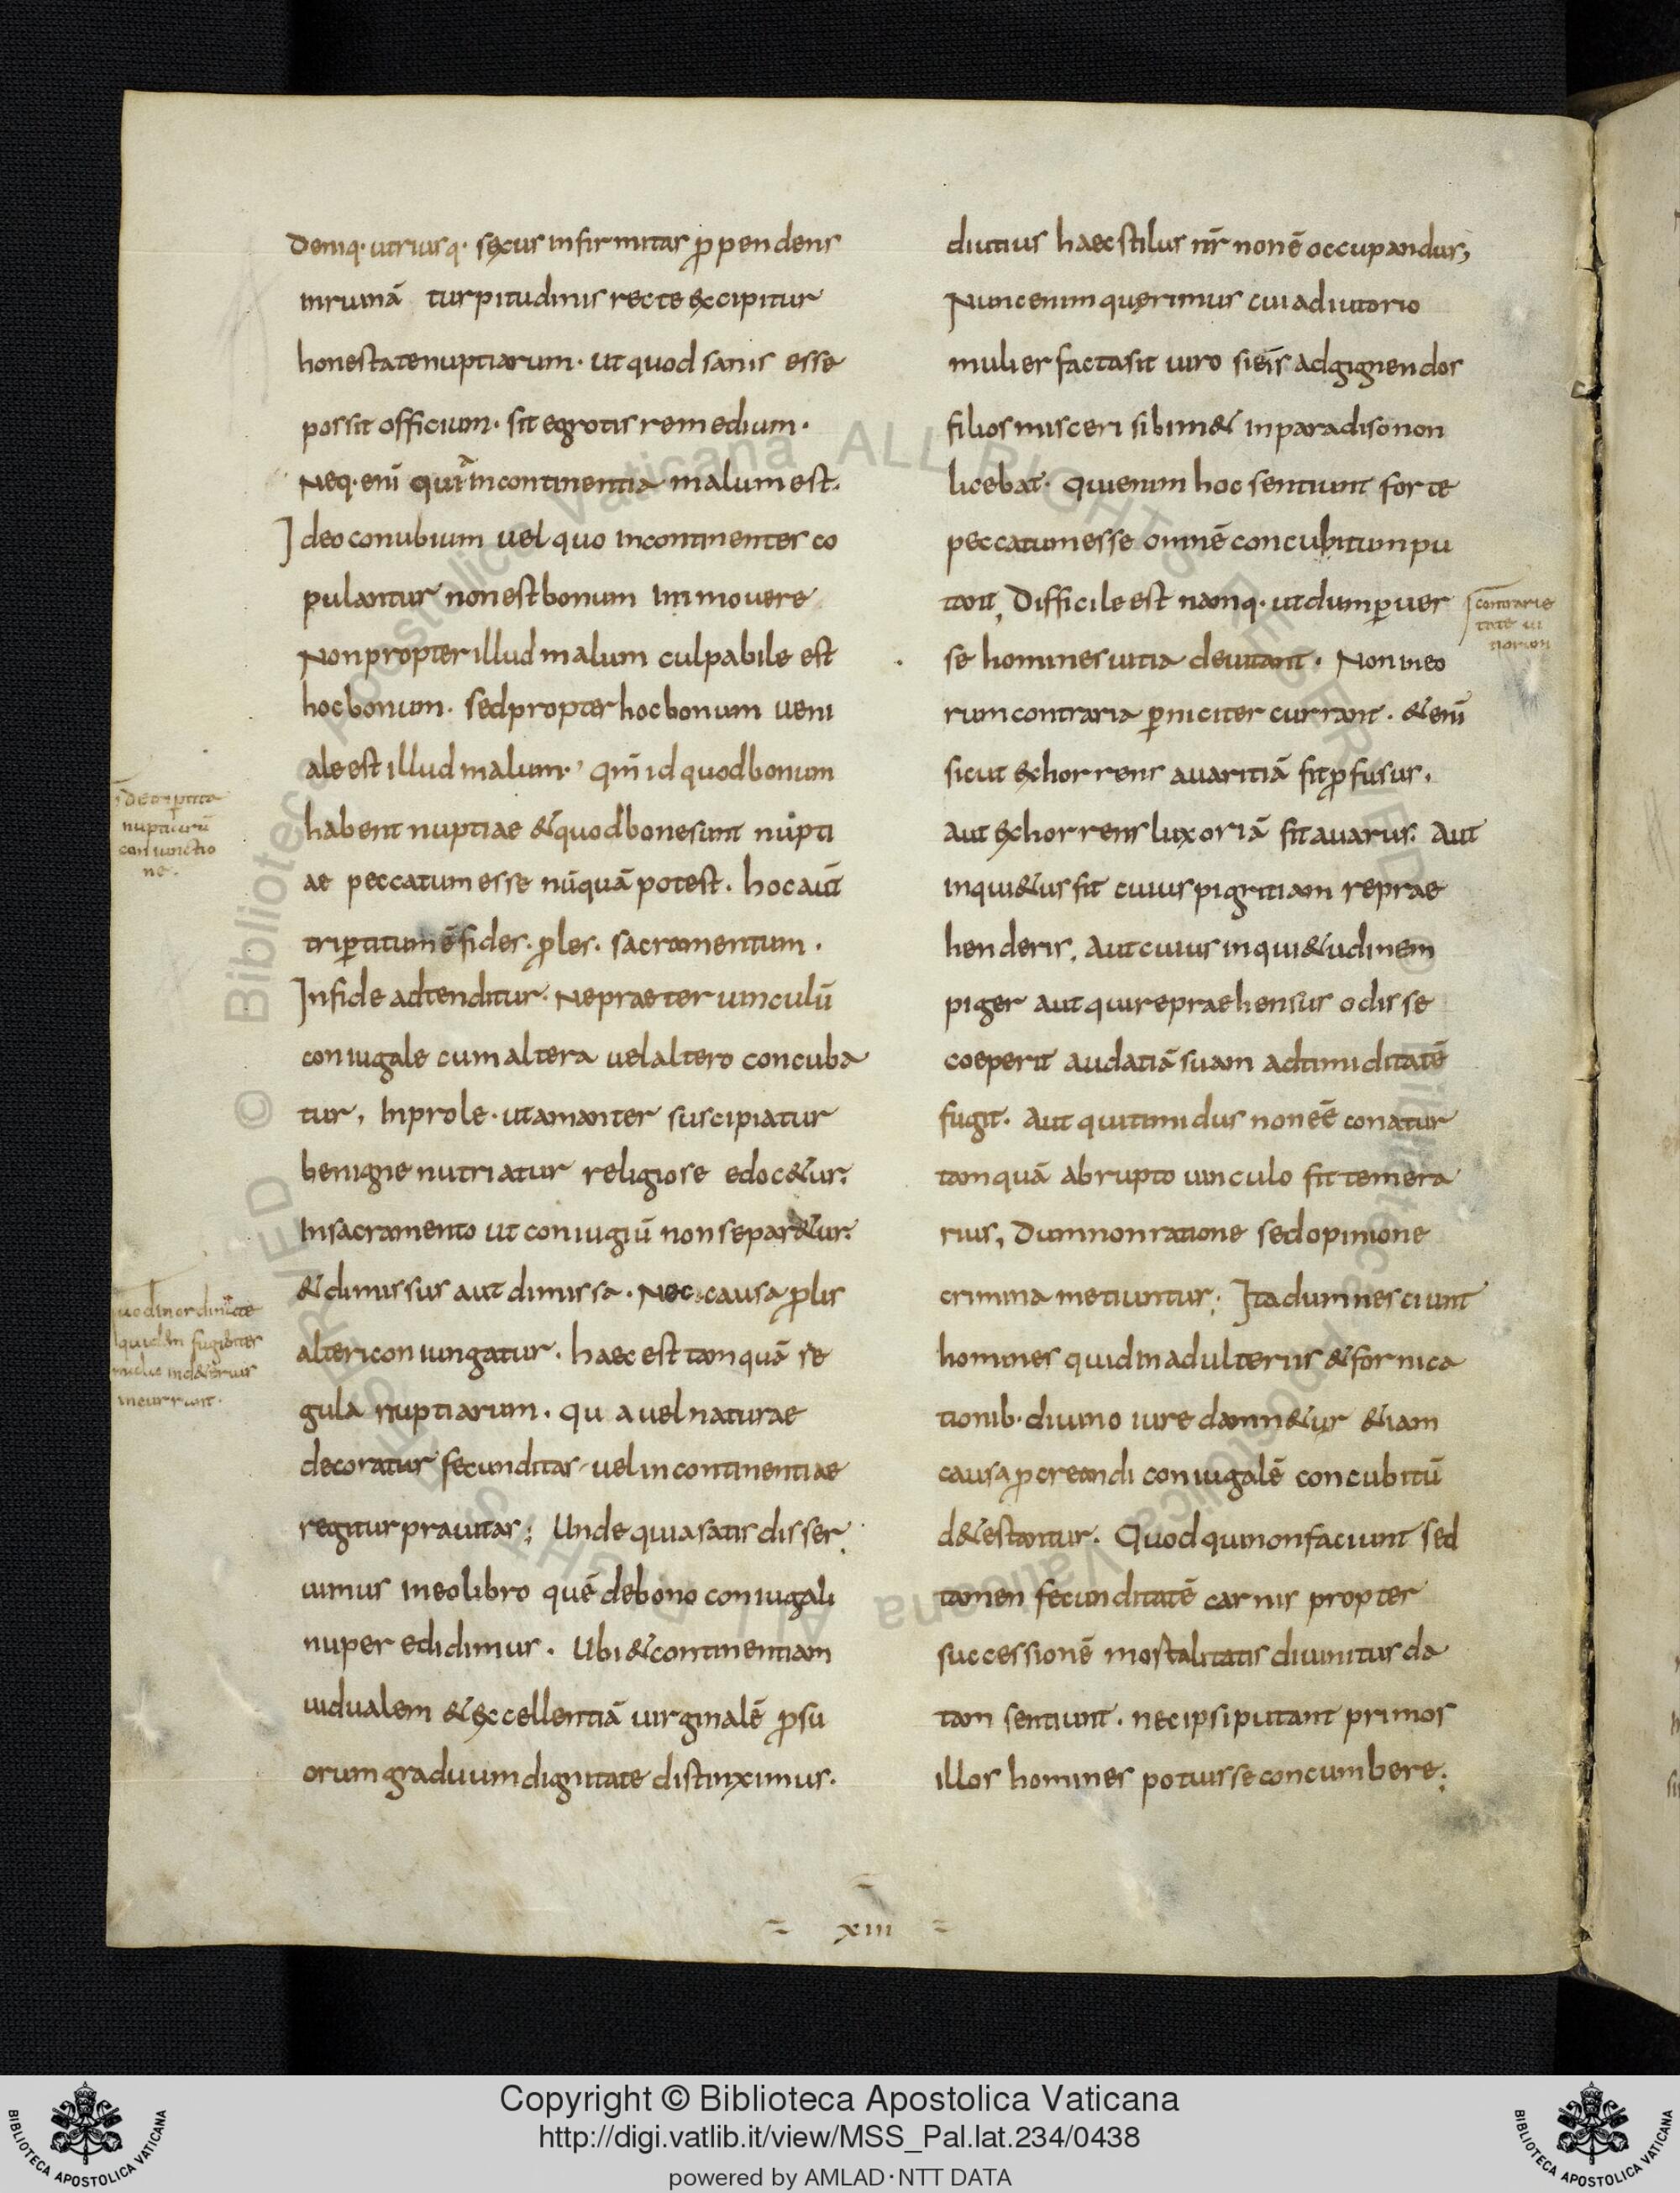 Deniq· utriusq· sęxus infirmitas ꝓpendens
inruinā turpitudinis recte excipitur
honestate nuptiarum· ut quod sanis esse
possit officium· sit egrotis remedium·
Neq· enī quia incontinentia malum est·
Ideo conubium uel quo incontinenter co
pulantur non est bonum Immo uere
Non propter illud malum culpabile est
hoc bonum· sed propter hoc bonum ueni
ale est illud malum· qm̄ id quod bonum
habent nuptiae & quod bone sunt nupti
ae peccatum esse nūquā potest· hoc aūt
triꝑtitum ē fides· ꝓles· sacramentum·
In fide adtenditur· Ne praeter uinculū
coniugale cum altera uel altero concuba
tur, In prole· ut amanter suscipiatur
benigne nutriatur religiose edoc&ur·
In sacramento ut coniugiū non separ&ur·
& dimissus aut dimissa· Nec causa ꝓlis
alteri coniungatur· haec est tanquā re
gula nuptiarum· qua uel naturae
decoratur fecunditas uel incontinentiae
regitur prauitas; Unde quia satis disser
uimus in eo libro quē de bono coniugali
nuper edidimus· Ubi & continentiam
uidualem & excellentiā uirginalē ꝓ su
orum graduum dignitate distinximus·
de tripertita
nuptiarū
coniunctio
ne·
quod inordinate
quidam fugienter
uitia in d&erius
incurrunt·
diutius haec stilus nr̄ non ē occupandus;
Nunc enim querimus cui adiutorio
mulier facta sit uiro si eis ad gignendos
filios misceri sibim& in paradiso non
licebat· Qui enim hoc sentiunt forte
peccatum esse omnē concubitum pu
tant, Difficile est namq· ut dum ꝑuer
se homines uitia deuitant· Non in eo
rum contraria ꝑniciter currant· & enī
sicut exhorrens auaritiā fit ꝓfusus,
aut exhorrens luxoriā fit auarus· aut
inqui&us fit cuius pigritiam reprae
henderis, aut cuius inqui&udinem
piger aut qui repraehensus odisse
coeperit audatiā suam ad timiditatē
fugit· aut qui timidus non eē conatur
tanquā abrupto uinculo fit temera
rius, Dum non ratione sed opinione
crimina metiuntur; Ita dum nesciunt
homines quid in adulteriis & fornica
tionib· diuino iure damn&ur &iam
causa ꝓcreandi coniugalē concubitū
d&estantur· Quod qui non faciunt sed
tamen fecunditatē carnis propter
successionē mortalitatis diuinitus da
tam sentiunt· nec ipsi putant primos
illos homines potuisse concumbere;
contrarie
tate ui
tiorum
xiii
Copyright © Biblioteca Apostolica Vaticana
http://digi.vatlib.it/view/MSS_Pal.lat.234/0438
powered by AMLAD·NTT DATA
BIBLIOTECA APOSTOLICA VATICANA
BIBLIOTECA APOSTOLICA VATICANA